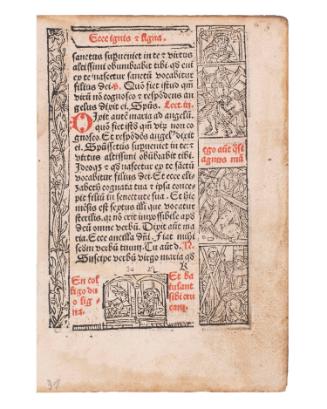 Ecce ignis ⁊ ligna.
sanctus supueniet in te ⁊ virtus
altissimi obumbrabit tibi. qd eni
ex te nascetur sanctū vocabitur
filius dei. Quō fiet istud qm̄
virū nō cognosco ⁊ respōdens an
gelus dixit ei. Spūs. Lect. iii.
Dixit autē maria ad angelū.
quō fiet istd qm̄ virū non co
gnosco. Et respōdēs angel⁹ dixit
ei. Spūssctūs supueniet in te ⁊
virtus altissimi obūbrabit tibi.
Ideoq₃ ⁊ qd nascetur ex te sāctū
vocabitur filius dei. Et ecce eli
zabeth cognata tua ⁊ ipsa conce
pit filiū in senectute sua. Et hic
mēsis est septus illi que vocatur
sterilis. qr nō erit impossibile apd
deū omne verbū. Dixit autē ma
ria. Ecce ancilla dn̄i. Fiat mihi
scdm verbū tuum. Tu aut d.
Suscipe verbū virgo maria qd
ego aūt q̄si
agnus mā
En col
ligo duo
lig
na.
Et ba
iulant
sibi cru
cem.